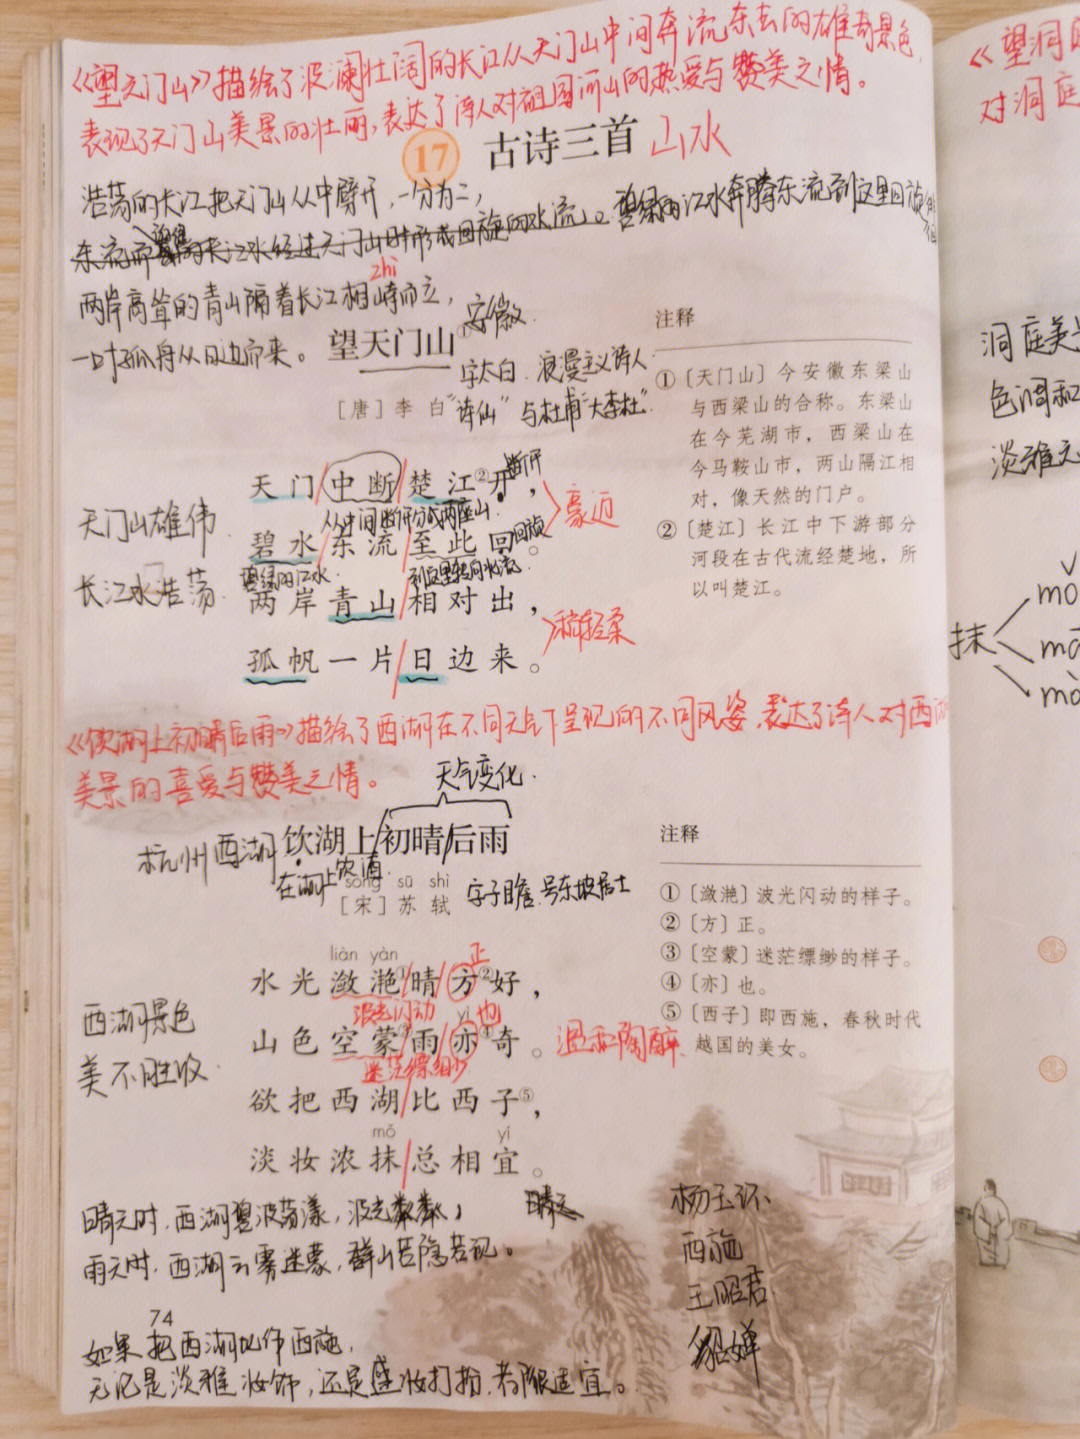 《望天门山》描绘了波澜壮阔的长江从天门山中间奔流东去的雄奇景色,
表现了天门山美景的壮丽,表达了诗人对祖国河山的热爱与赞美之情。
17 古诗三首 山水
浩荡的长江把天门山从中劈开,一分为二,
东流而 的长江水经过天门山时形成回旋的水流」。碧绿的江水奔腾东流到这里回旋
zhì
两岸高耸的青山隔着长江相峙而立,
一叶孤舟从日边而来。
望天门山① 安徽.
字太白. 浪漫主义诗人
[唐]李 白 "诗仙" 与杜甫"大李杜".
天门/中断/楚江②开, 断开
从中间断开分成两座山.
天门山雄伟.
碧水/东流/至此回。 回旋
豪迈
碧绿的江水.
长江水浩荡.
两岸青山/相对出,
孤帆一片/日边来。
注释
①〔天门山〕今安徽东梁山
与西梁山的合称。东梁山
在今芜湖市,西梁山在
今马鞍山市,两山隔江相
对,像天然的门户。
②〔楚江〕长江中下游部分
河段在古代流经楚地,所
以叫楚江。
《饮湖上初晴后雨》描绘了西湖在不同天气下呈现的不同风姿.表达了诗人对西湖
美景的喜爱与赞美之情。
天气变化.
杭州西湖 饮湖上/初晴/后雨
在湖上饮酒.
sòng sū shì
[宋]苏 轼 字子瞻.号东坡居士
liàn yàn 正
水光潋滟①/晴/方②好,
波光闪动 yì 也
山色空蒙③/雨/亦④奇。
迷茫缥缈
温和陶醉.
西湖景色
美不胜收.
欲把西湖/比西子⑤,
mǒ yí
淡妆浓抹/总相宜。
注释
①〔潋滟〕波光闪动的样子。
②〔方〕正。
③〔空蒙〕迷茫缥缈的样子。
④〔亦〕也。
⑤〔西子〕即西施,春秋时代
越国的美女。
晴天时.西湖碧波荡漾,波光粼粼; 晴天
雨天时.西湖云雾迷蒙,群山若隐若现。
74
如果把西湖比作西施,
无论是淡雅妆饰,还是盛妆打扮.都很适宜。
杨玉环
西施
王昭君.
貂婵
《望洞
对洞庭
洞庭美
色调和
淡雅
抹
mǒ
mā
mò